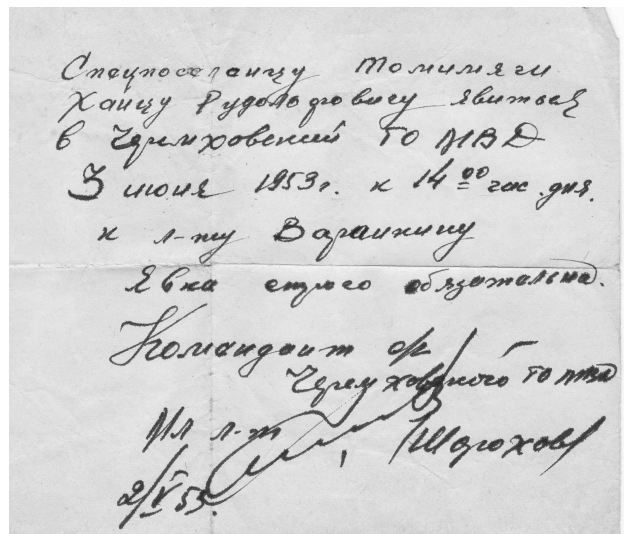 Спецпоселенцу Томимяги
Хансу Рудольфовичу явиться
в Черемховский ГО МВД
3 июня 1953г. к 14 00 час. дня.
к л-ту Варанкину
Явка строго обязательна.
Комендант с/к
Черемховского ГО МВД
Мл л-т /Шорохов/
2/V 53.